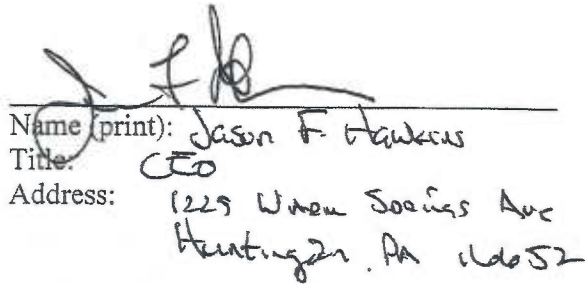 Name (print): Jason F. Hawkins
Title: CEO
Address: 1229 Warm Springs Ave
Huntingdon, PA 16652